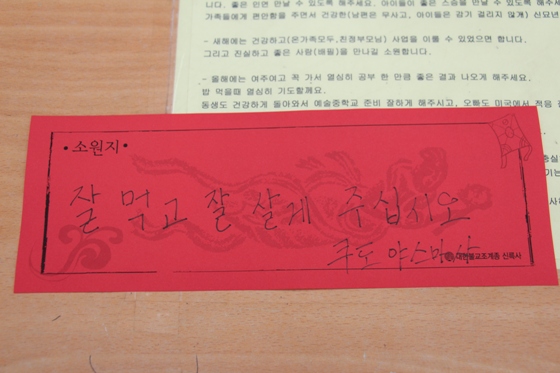 니다. 좋은 인연 만날 수 있도록 해주세요. 아이들이 좋은 스승을 만날 수 있도록 해주세
가족들에게 편안함을 주면서 건강한(남편은 무사고, 아이들은 감기 걸리지 않게) 신묘년
- 새해에는 건강하고(온가족모두,친정부모님) 사업을 이룰 수 있었으면 합니다.
그리고 진실하고 좋은 사람(배필)을 만나길 소원합니다.
- 올해에는 여주여고 꼭 가서 열심히 공부 한 만큼 좋은 결과 나오게 해주세요.
밥 먹을때 열심히 기도할께요.
동생도 건강하게 돌아와서 예술중학교 준비 잘하게 해주시고, 오빠도 미국에서 적응
•소원지•
잘 먹고 잘 살게 주십시오
쿠도 야스마사
대한불교조계종 신륵사